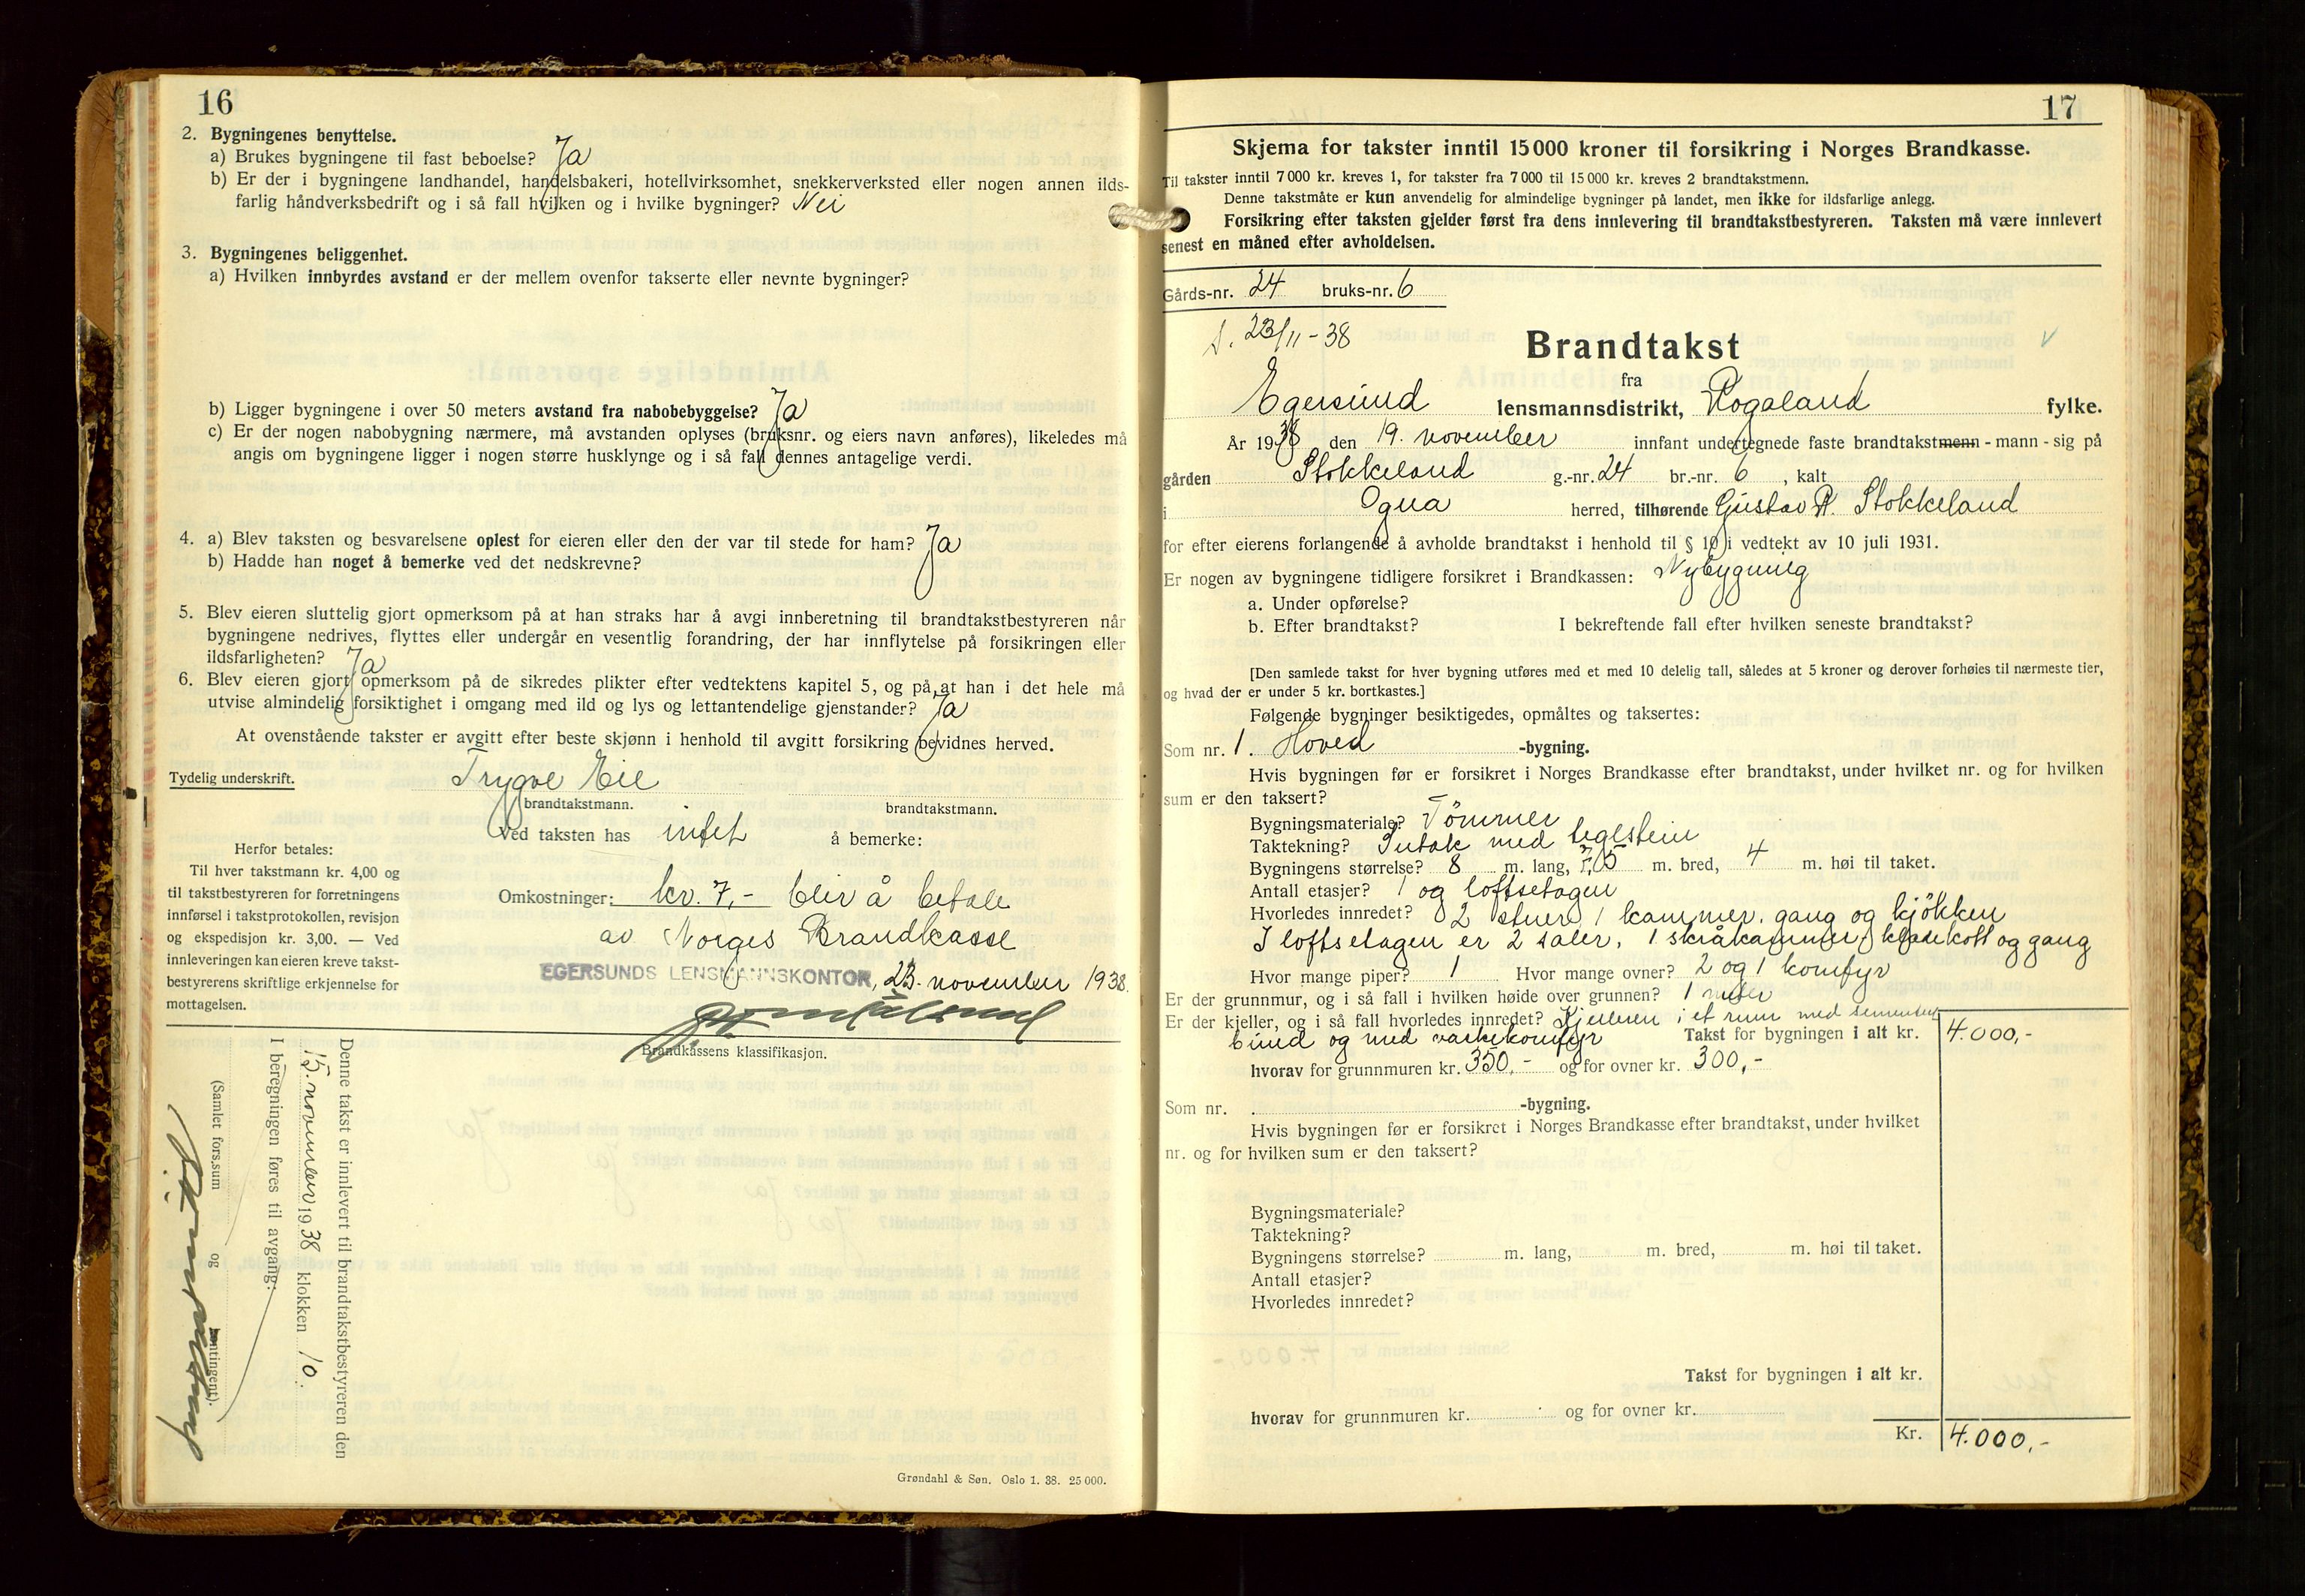 16
2. Bygningenes benyttelse.
a) Brukes bygningene til fast beboelse? Ja
b) Er der i bygningene landhandel, handelsbakeri, hotellvirksomhet, snekkerverksted eller nogen annen ilds-
farlig håndverksbedrift og i så fall hvilken og i hvilke bygninger? Nei
3. Bygningenes beliggenhet.
a) Hvilken innbyrdes avstand er der mellem ovenfor takserte eller nevnte bygninger?
b) Ligger bygningene i over 50 meters avstand fra nabobebyggelse? Ja
c) Er der nogen nabobygning nærmere, må avstanden oplyses (bruksnr. og eiers navn anføres), likeledes må
angis om bygningene ligger i nogen større husklynge og i så fall dennes antagelige verdi.
4. a) Blev taksten og besvarelsene oplest for eieren eller den der var til stede for ham? Ja
b) Hadde han noget å bemerke ved det nedskrevne?
5. Blev eieren sluttelig gjort opmerksom på at han straks har å avgi innberetning til brandtakstbestyreren når
bygningene nedrives, flyttes eller undergår en vesentlig forandring, der har innflytelse på forsikringen eller
ildsfarligheten? Ja
6. Blev eieren gjort opmerksom på de sikredes plikter efter vedtektens kapitel 5, og på at han i det hele må
utvise almindelig forsiktighet i omgang med ild og lys og lettantendelige gjenstander? Ja
At ovenstående takster er avgitt efter beste skjønn i henhold til avgitt forsikring bevidnes herved.
Tydelig underskrift. Trygve Eie
brandtakstmann. brandtakstmann.
Ved taksten has intet å bemerke:
Herfor betales:
Til hver takstmann kr. 4,00 og
til takstbestyreren for forretningens
innførsel i takstprotokollen, revisjon
og ekspedisjon kr. 3,00. — Ved
innleveringen kan eieren kreve takst-
bestyrerens skriftlige erkjennelse for
mottagelsen.
Omkostninger: kr. 7,- blir å betale
av Norges Brandkasse
EGERSUNDS LENSMANNSKONTOR, 23. november 1938.
Brandkassens klassifikasjon.
Denne takst er innlevert til brandtakstbestyreren den
15. november 1938 klokken 10.
I beregningen føres til avgang:
(Samlet fors.sum og kontingent).
Grøndahl & Søn. Oslo 1. 38. 25 000.
17
Skjema for takster inntil 15 000 kroner til forsikring i Norges Brandkasse.
Til takster inntil 7 000 kr. kreves 1, for takster fra 7 000 til 15 000 kr. kreves 2 brandtakstmenn.
Denne takstmåte er kun anvendelig for almindelige bygninger på landet, men ikke for ildsfarlige anlegg.
Forsikring efter taksten gjelder først fra dens innlevering til brandtakstbestyreren. Taksten må være innlevert
senest en måned efter avholdelsen.
Gårds-nr. 24 bruks-nr. 6
23/11-38
Brandtakst
fra
Egersund lensmannsdistrikt, Rogaland fylke.
År 1938 den 19. november innfant undertegnede faste brandtakstmenn - mann - sig på
gården Stokkeland g.-nr. 24 br.-nr. 6, kalt
i Ogna herred, tilhørende Gustav R. Stokkeland
for efter eierens forlangende å avholde brandtakst i henhold til § 10 i vedtekt av 10 juli 1931.
Er nogen av bygningene tidligere forsikret i Brandkassen: Nybygning
a. Under opførelse?
b. Efter brandtakst? I bekreftende fall efter hvilken seneste brandtakst?
[Den samlede takst for hver bygning utføres med et med 10 delelig tall, således at 5 kroner og derover forhøies til nærmeste tier,
og hvad der er under 5 kr. bortkastes.]
Følgende bygninger besiktigedes, opmåltes og taksertes:
Som nr. 1. Hoved -bygning.
Hvis bygningen før er forsikret i Norges Brandkasse efter brandtakst, under hvilket nr. og for hvilken
sum er den taksert?
Bygningsmateriale? Tömmer
Taktekning? Sutak med teglstein
Bygningens størrelse? 8 m. lang, 7,5 m. bred, 4 m. høi til taket.
Antall etasjer? 1 og loftsetagen
Hvorledes innredet? 2 stuer 1 kammer, gang og kjökken
I loftsetagen er 2 saler, 1 skråkammer, kladekott og gang
Hvor mange piper? 1 Hvor mange ovner? 2 og 1 komfyr
Er der grunnmur, og i så fall i hvilken høide over grunnen? 1 meter
Er der kjeller, og i så fall hvorledes innredet? Kjelleren i et rum med sementert
bund og med vaskekomfyr Takst for bygningen i alt kr. 4.000,-
hvorav for grunnmuren kr. 350,- og for ovner kr. 300,-
Som nr. -bygning.
Hvis bygningen før er forsikret i Norges Brandkasse efter brandtakst, under hvilket
nr. og for hvilken sum er den taksert?
Bygningsmateriale?
Taktekning?
Bygningens størrelse? m. lang, m. bred, m. høi til taket.
Antall etasjer?
Hvorledes innredet?
Takst for bygningen i alt kr.
hvorav for grunnmuren kr. og for ovner kr.
Kr. 4.000,-